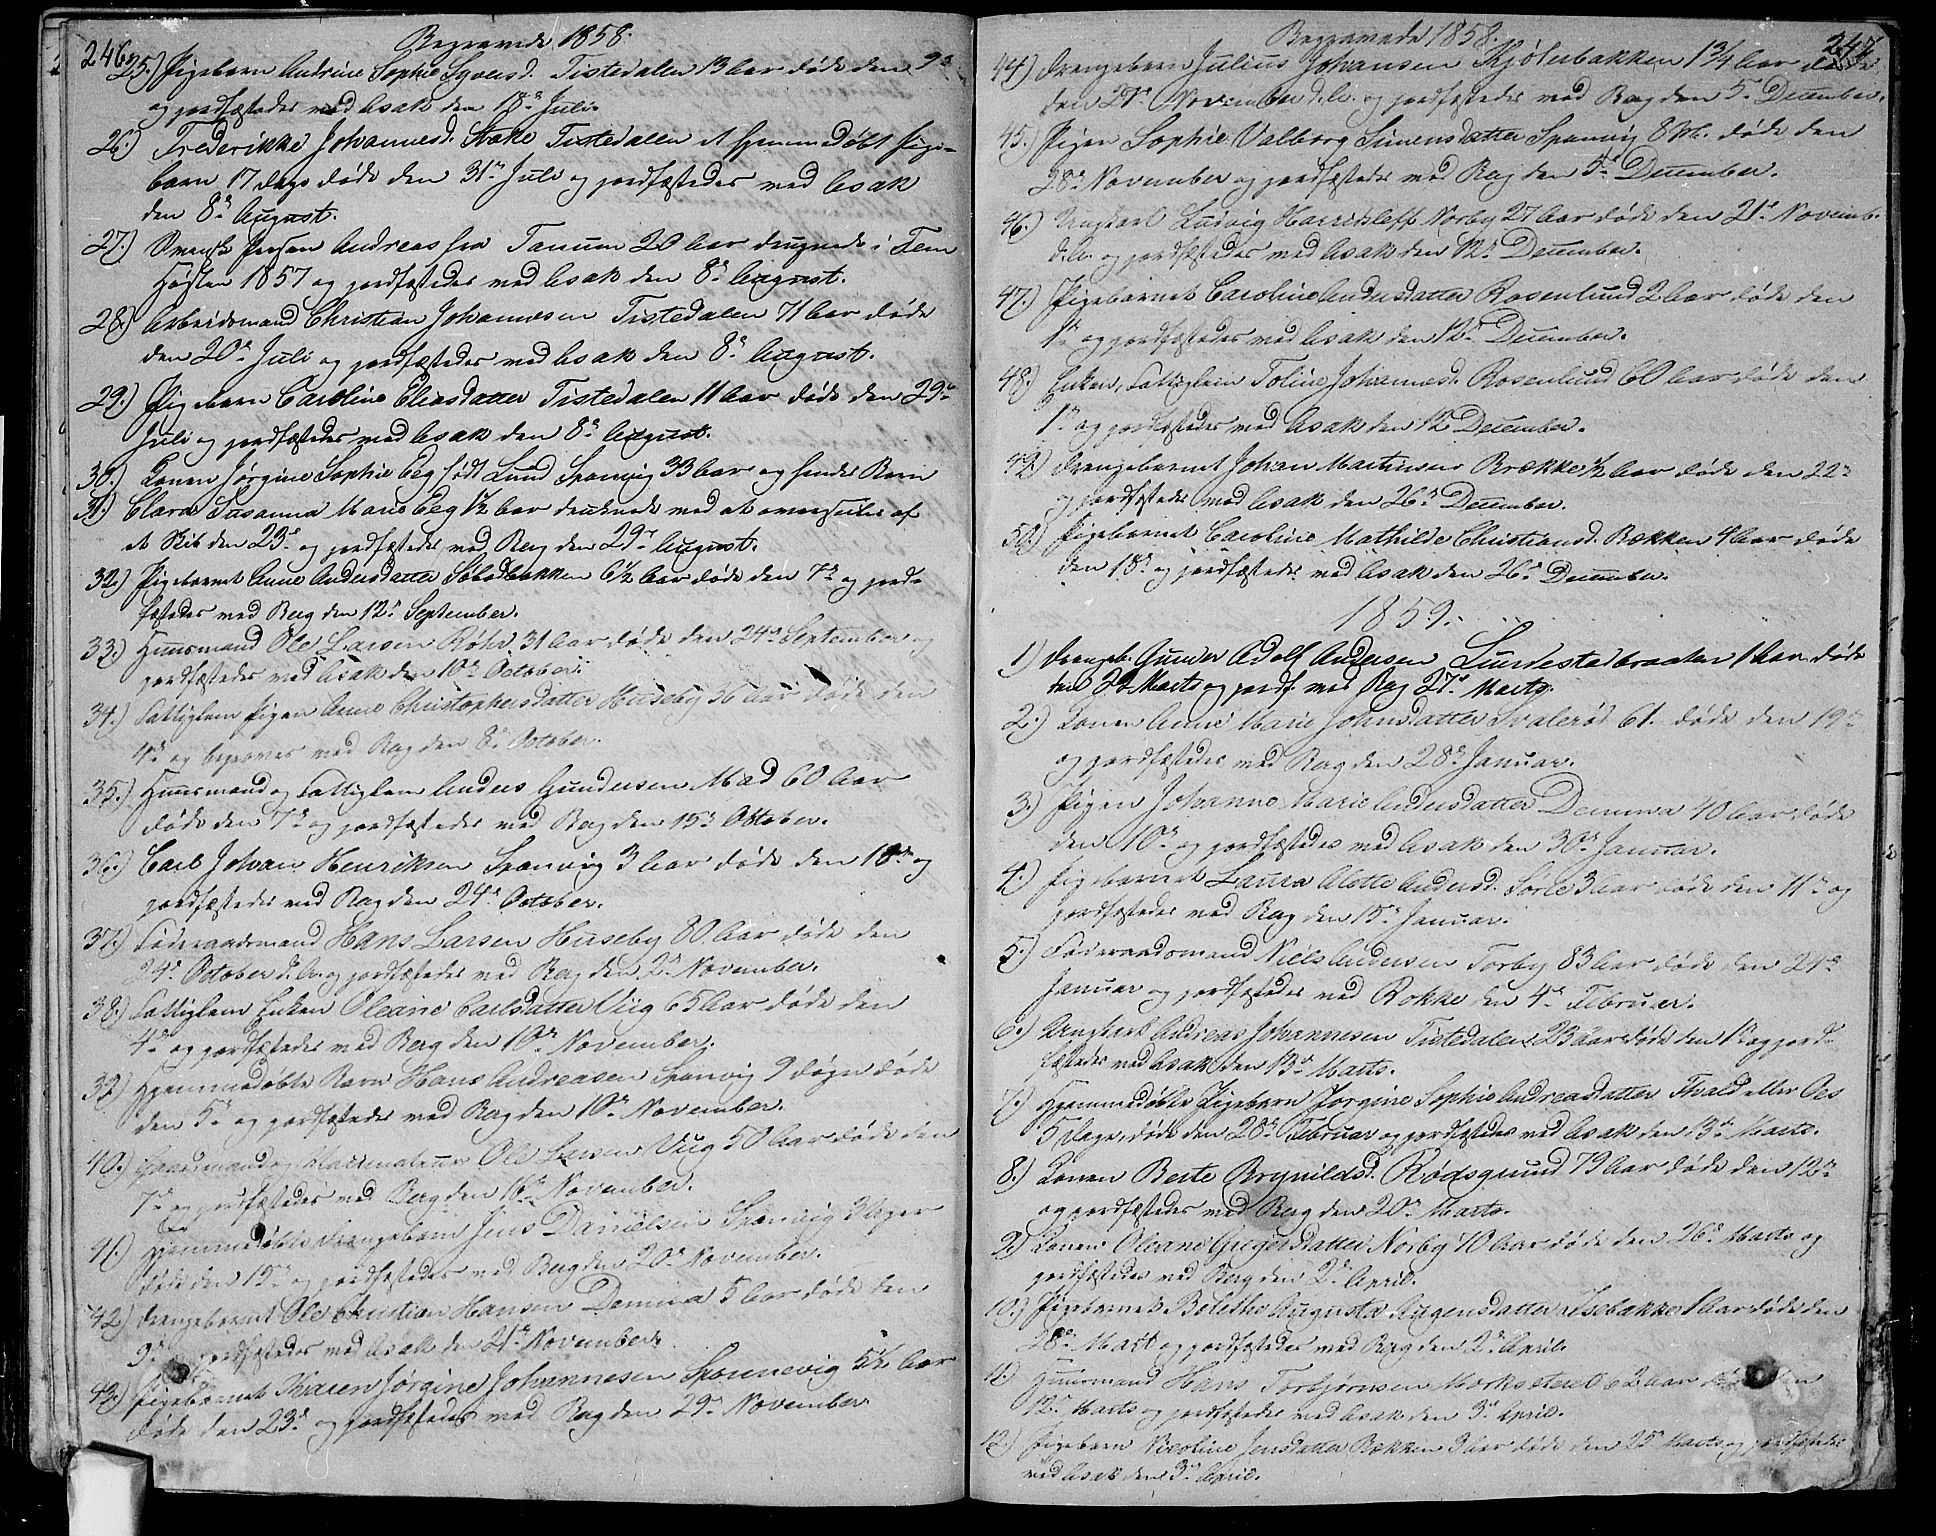 246.
Begravede 1858.
25.) Pigebarn Andrine Sophie Svensd. Tistedalen 13 Aar døde den 9de
og jordfæstedes med Asak den 18de Juli.
26.) Frederikke Johannesd. Stake Tistedalen et hjemmedøbt Pige-
barn 17 Dage døde den 31te Juli og jordfæstedes med Asak
den 8de August.
27.) Svensk Person Andreas fra Tanum 20 Aar druknede i Fem
Høsten 1857 og jordfæstedes med Asak den 8de August.
28.) Arbeidsmand Christian Johannesen Tistedalen 71 Aar døde
den 20de Juli og jordfæstedes med Asak den 8de August.
29.) Pigebarn Caroline Eliasdatter Tistedalen 11 Aar døde den 29de
Juli og jordfæstedes med Asak den 8de August.
30.) Konen Jørgine Sophie Eeg født Lund Sponvig 33 Aar og hendes Barn
31.) Clara Susanna Marie Eeg 1½ Aar druknede ved at overseiles af
et Skib den 23de og jordfæstedes med Berg den 29de August.
32.) Pigebarnet Anne Andersdatter Sølvdbakken 6½ Aar døde den 7de og jord-
fæstedes med Berg den 12te September.
33.) Huusmand Ole Larsen Røhr 31 Aar døde den 24de September og
jordfæstedes med Asak den 10de October.
34.) Fattiglem Pigen Anne Christophersdatter Huseby 36 Aar døde den
4de og begraves med Berg den 8de October.
35.) Huusmand og Fattiglem Anders Gundersen Mad 60 Aar
døde den 7de og jordfæstedes med Berg den 15de October.
36.) Carl Johan Henriksen Sponvig 3 Aar døde den 18de og
jordfæstedes med Berg den 24de October.
37.) Føderaadsmand Hans Larsen Huseby 80 Aar døde den
24de October d. A. og jordfæstedes med Berg den 2de November.
38.) Fattiglem Enken Oleane Carlsdatter Viig 65 Aar døde den
4de og jordfæstedes med Berg den 10de November.
39.) Hjemmedøbte Barn Hans Andreasen Sponvig 9 Døgn døde
den 5te og jordfæstedes med Berg den 10de November.
40.) Gaardmand og Ole Larsen Viig 50 Aar døde den
7de og jordfæstedes med Berg den 16de November.
41.) Hjemmedøbte Drengebarn Jens Danielsen Sponvig 3 Uger
døde den 15de og jordfæstedes med Berg den 20de November.
42.) Drengebarnet Ole Christian Hansen Demma 5 Aar døde den
9de og jordfæstedes med Asak den 21de November.
43.) Pigebarnet Karen Jørgine Johannesen Sponnevig 5½ Aar
døde den 23de og jordfæstedes med Berg den 29de November.
247.
Begravede 1858.
44.) Drengebarn Julius Johansen Kjølerbakken 1¾ Aar døde
den 27de November d. A. og jordfæstedes med Berg den 5te December.
45.) Pigen Sophie Valborg Simensdatter Sponvig 8 Mb. døde den
28de November og jordfæstedes med Berg den 5te December.
46.) Ungkarl Ludvig Norby 27 Aar døde den 21de Novemb.
d. A. og jordfæstedes med Asak den 12te December.
47.) Pigebarnet Caroline Andersdatter Rosenlund 2 Aar døde den
1te og jordfæstedes med Asak den 12te December.
48.) Enken, Fattiglem Toline Johannesd. Rosenlund 60 Aar døde den
1te og jordfæstedes med Asak den 12 December.
49.) Drengebarnet Johan Martinsen Brække ½ Aar døde den 22de
og jordfæstedes med Asak den 26de December.
50.) Pigebarnet Caroline Mathilde Christiansd. Bækken 4 Aar døde
den 18de og jordfæstedes med Asak den 26de December.
1859.
1) Drengeb. Gunder Adolf Andersen Lundestadbraaten 1 Aar døde
den 20 Marts og jordf. med Berg 27de Marts.
2.) Konen Anne Marie Johnsdatter Svalerød 61. døde den 19de
og jordfæstedes med Berg den 28de Januar.
3.) Pigen Johanne Marie Andersdatter Demma 40 Aar døde
den 10de og jordfæstedes med Asak den 30de Januar.
4.) Pigebarnet Laura Alette Andersd. Sørlie 3 Aar døde den 11te og
jordfæstedes med Berg den 15de Januar.
5.) Føderaadsmand Niels Andersen Torby 83 Aar døde den 24de
Januar og jordfæstedes med Rokke den 4de Februar.
6.) Ungkarl Andreas Johannesen Tistedalen 23 Aar døde den 1te og jord-
fæstedes med Asak den 13de Marts.
7.) Hjemmedøbte Pigebarn Jørgine Sophie Andreasdatter Thvald eller Oes
5 Dage, døde den 28de Februar og jordfæstedes med Asak den 13de Marts.
8.) Konen Berte Brynildsd. Rødsgrund 79 Aar døde den 12te
og jordfæstedes med Berg den 20de Marts.
9.) Konen Oleane Gregersdatter Norby 40 Aar døde den 26de Marts og
jordfæstedes med Berg den 2de April.
10.) Pigebarnet Bolethe Augusta Augensdatter Isebakke 1 Aar døde den
28de Mart og jordfæstedes med Berg den 2de April.
11.) Huusmand Hans Torbjørnsen Aar døde den
12te Marts og jordfæstedes med Asak den 3de April.
12.) Pigebarn Nicoline Jensdatter Bækken 3 Aar døde den 25de Marts og jordfæstedes
med Asak den 3de April.